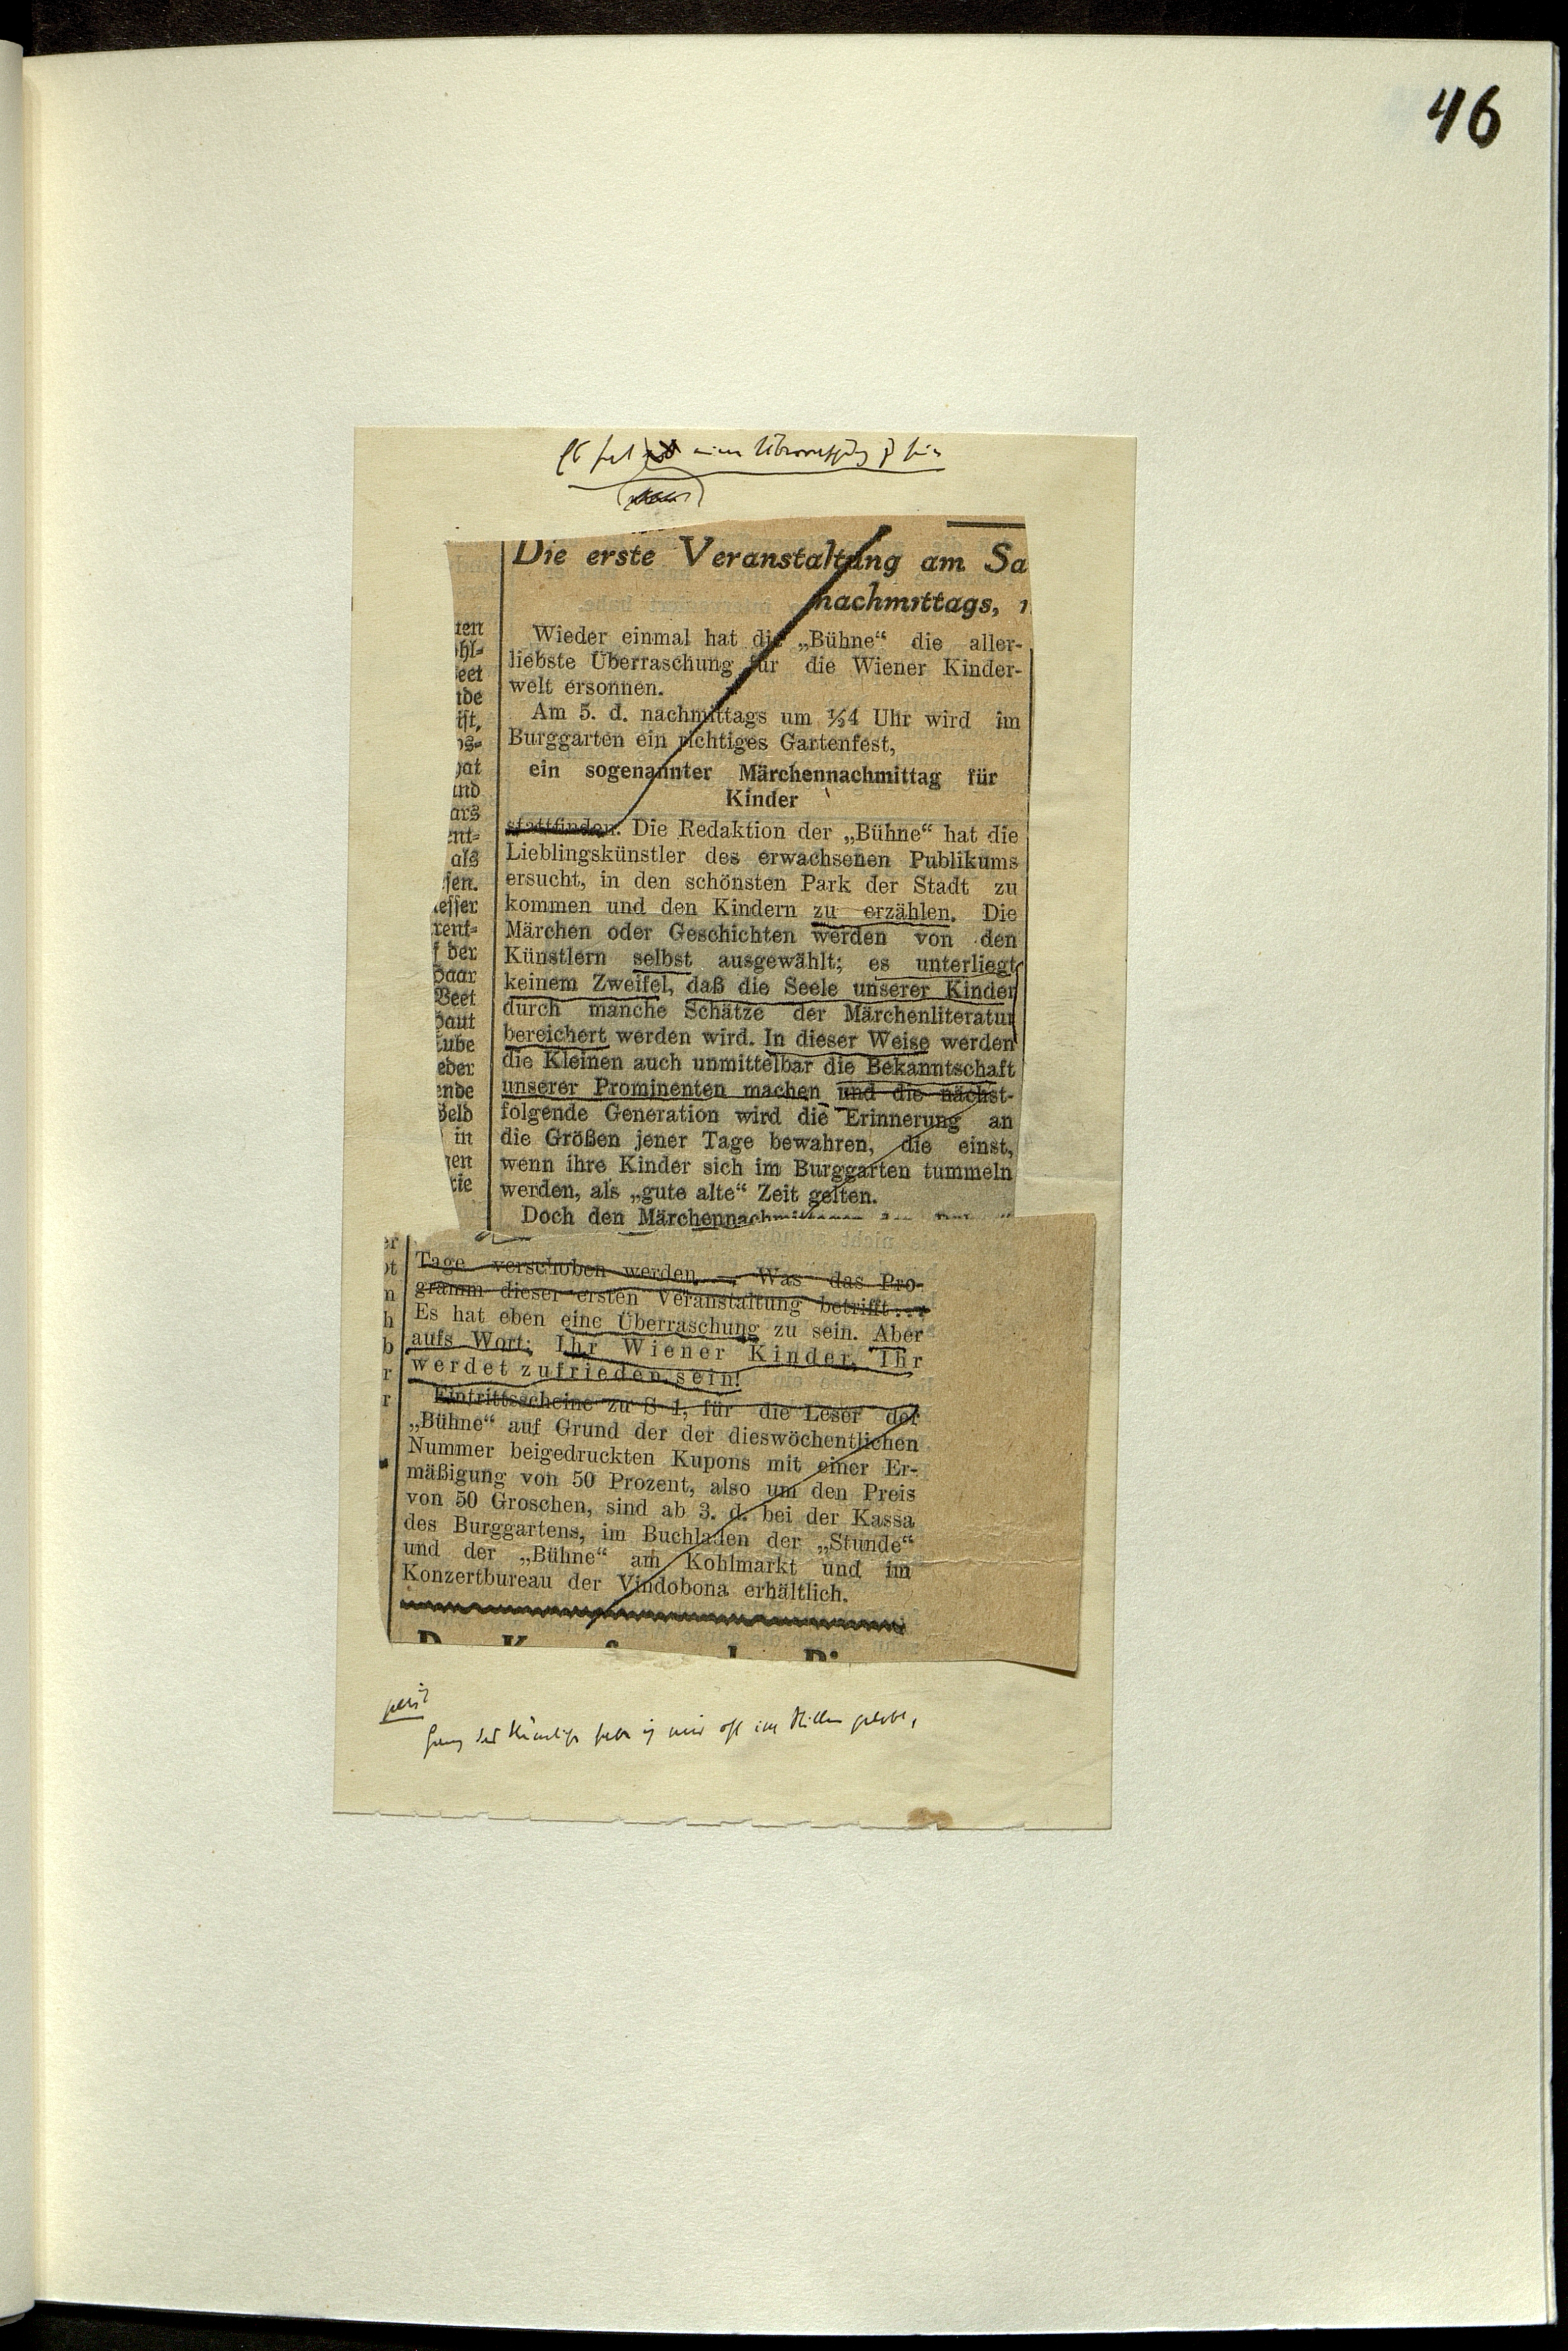 46
Es hat eine Überraschung zu sein
Die erste Veranstaltung am Sa
nachmittags,
Wieder einmal hat die „Bühne“ die aller-
liebste Überraschung für die Wiener Kinder-
welt ersonnen.
Am 5. d. nachmittags um ½4 Uhr wird im
Burggarten ein richtiges Gartenfest,
ein sogenannter Märchennachmittag für
Kinder
stattfinden. Die Redaktion der „Bühne“ hat die
Lieblingskünstler des erwachsenen Publikums
ersucht, in den schönsten Park der Stadt zu
kommen und den Kindern zu erzählen. Die
Märchen oder Geschichten werden von den
Künstlern selbst ausgewählt; es unterliegt
keinem Zweifel, daß die Seele unserer Kinder
durch manche Schätze der Märchenliteratur
bereichert werden wird. In dieser Weise werden
die Kleinen auch unmittelbar die Bekanntschaft
unserer Prominenten machen und die nächst-
folgende Generation wird die Erinnerung an
die Größen jener Tage bewahren, die einst,
wenn ihre Kinder sich im Burggarten tummeln
werden, als „gute alte“ Zeit gelten.
Doch den Märchennachmittagen
ten
hl-
eet
nde
ist,
os-
hat
und
ars
ent-
als
sen.
esser
rent-
f der
Haar
Beet
Haut
tube
eder
ende
Geld
in
gen
tie
Tage verschoben werden. — Was das Pro-
gramm dieser ersten Veranstaltung betrifft...
Es hat eben eine Überraschung zu sein. Aber
aufs Wort: Ihr Wiener Kinder, Ihr
werdet zufrieden sein!
Eintrittsscheine zu S 1, für die Leser der
„Bühne“ auf Grund der der dieswöchentlichen
Nummer beigedruckten Kupons mit einer Er-
mäßigung von 50 Prozent, also um den Preis
von 50 Groschen, sind ab 3. d. bei der Kassa
des Burggartens, im Buchladen der „Stunde“
und der „Bühne“ am Kohlmarkt und im
Konzertbureau der Vindobona erhältlich.
er
ot
n
h
b
r
r
habe ich mir oft im Stillen gelobt,